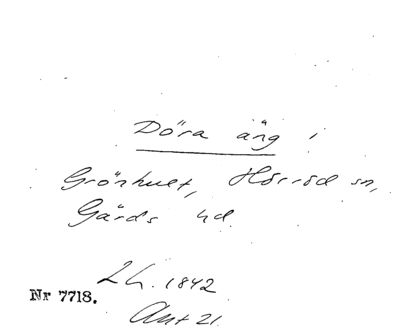 Döra äng i
Grönhult, Hörröd sn,
Gärds hd.
Lh. 1842
Nr 7718.
Akt 21.